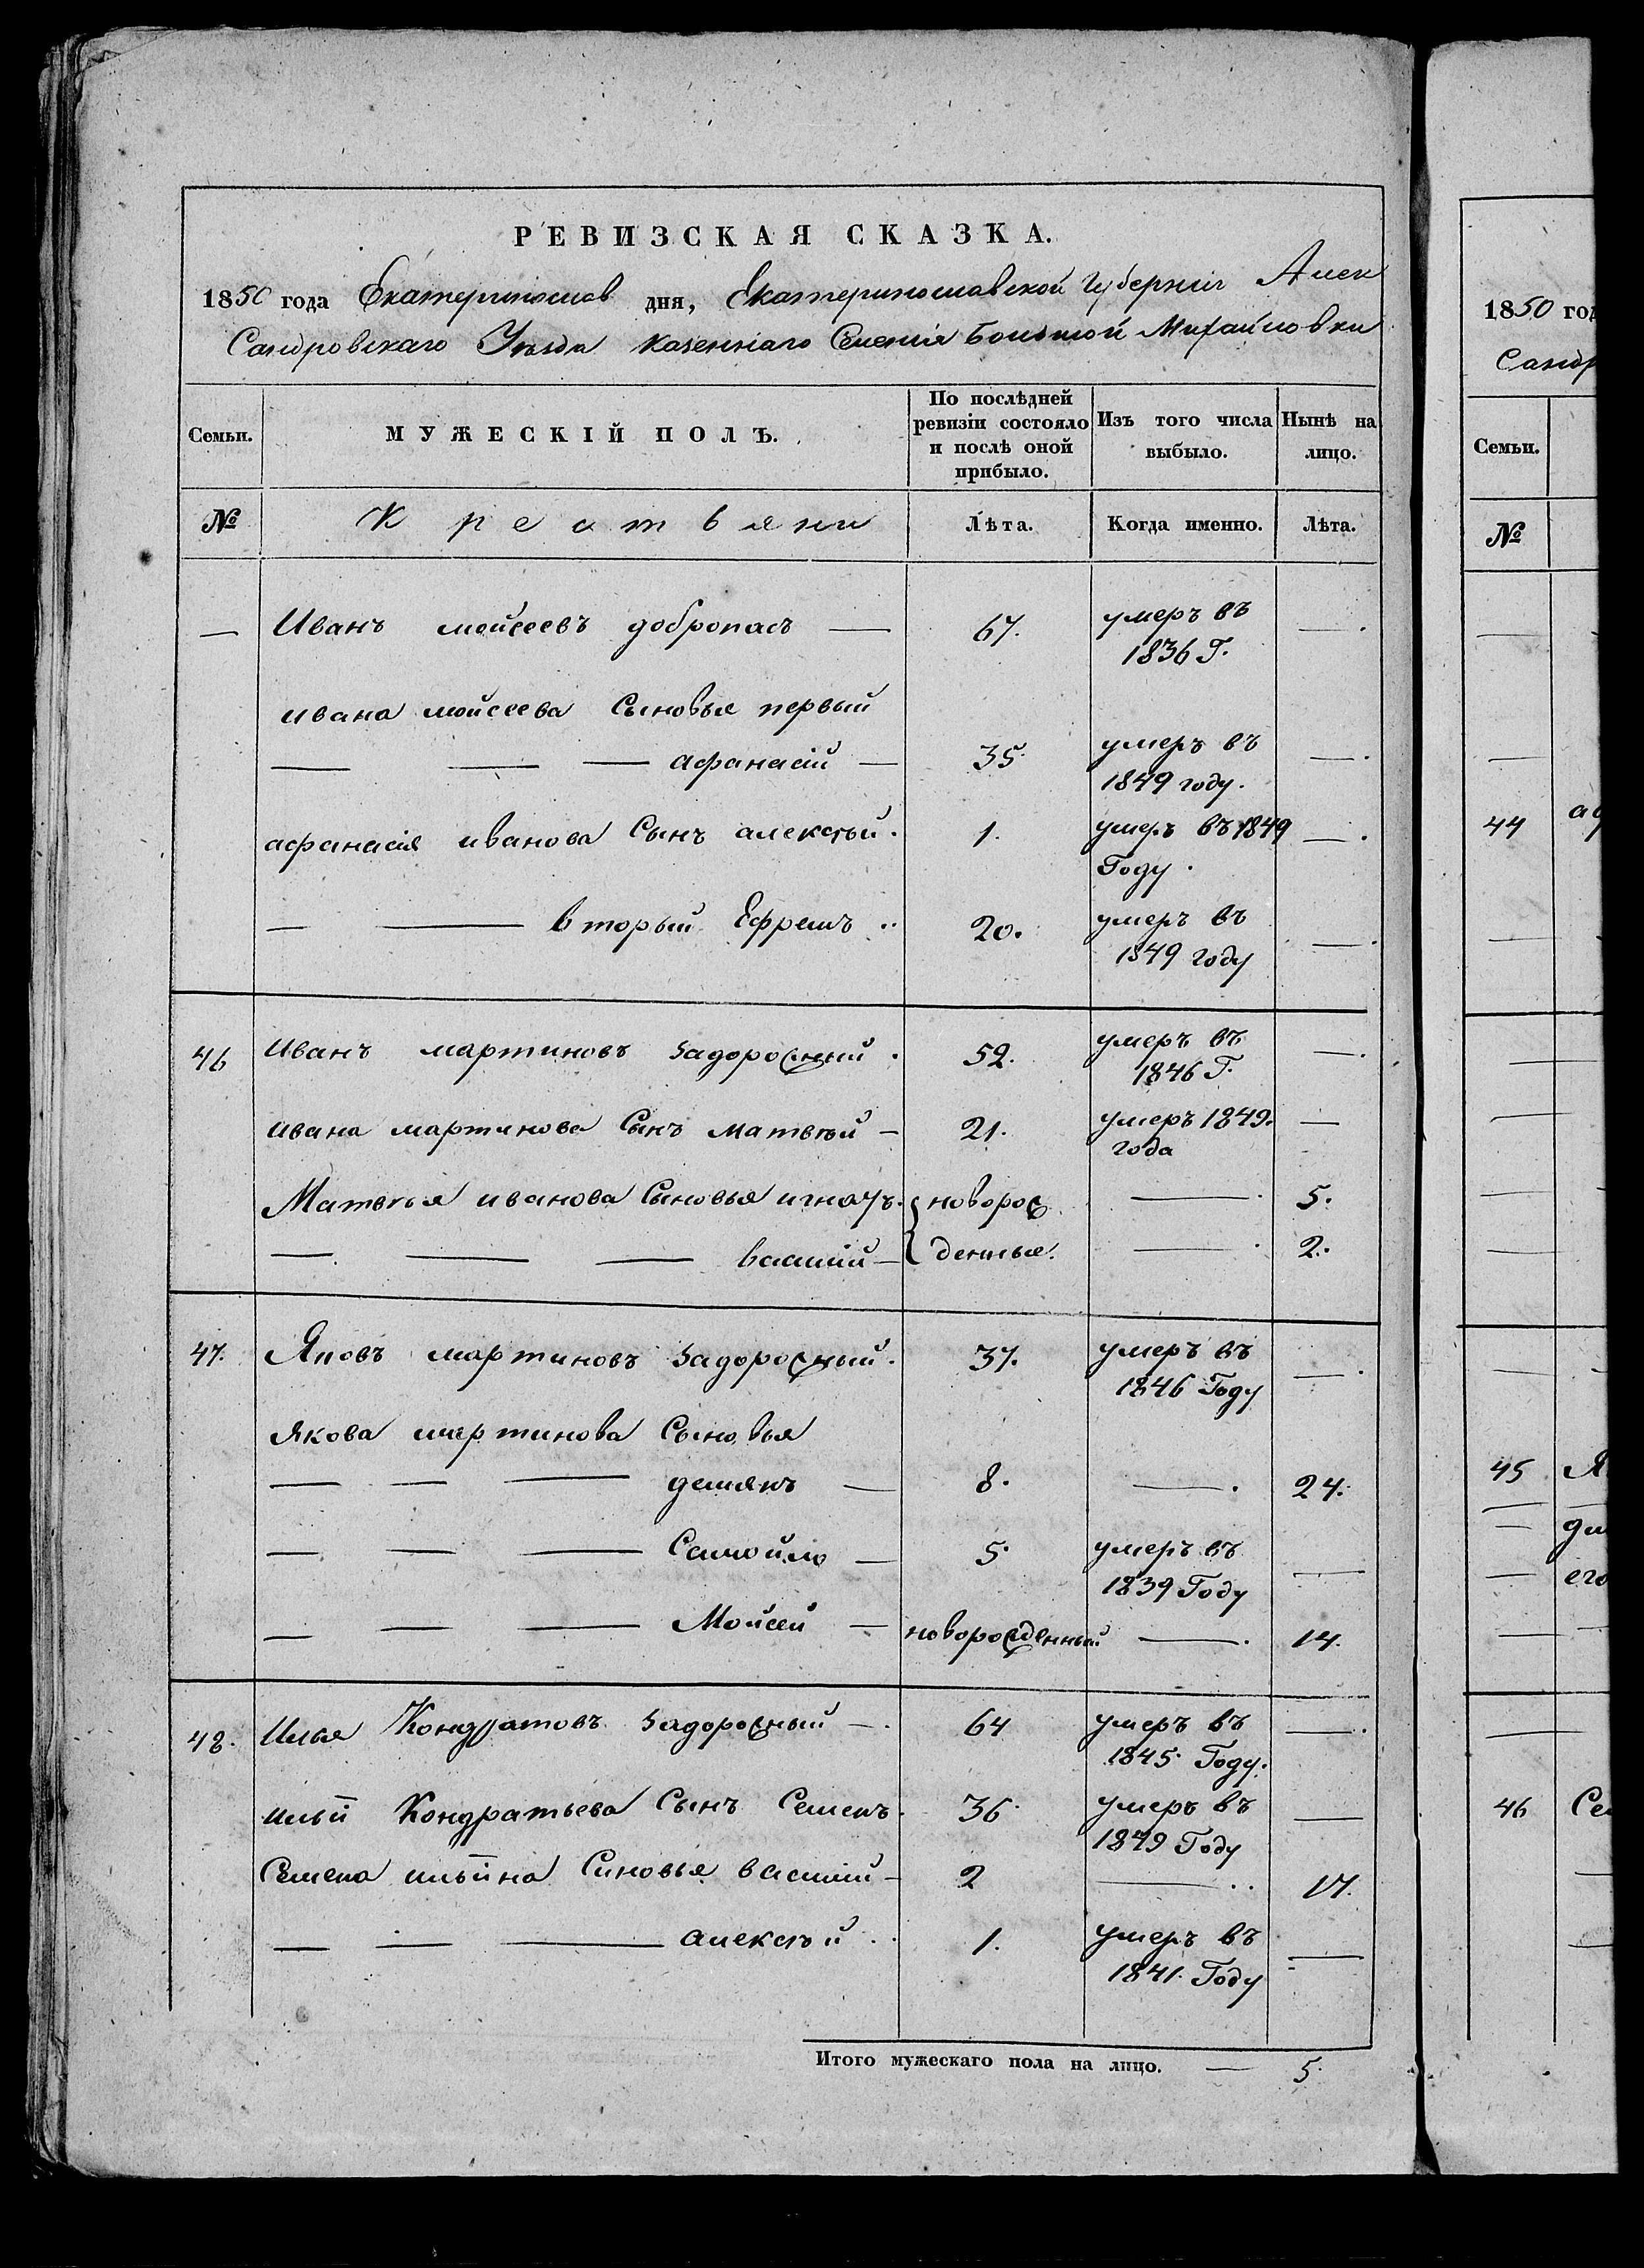 РЕВИЗСКАЯ СКАЗКА.
1850 года Екатеринослав дня, Екатеринославской Губерніи Алек
Сандровскаго Уѣзда казеннаго Селенія Большой Михайловки
Семьи.
МУЖЕСКІЙ ПОЛЪ.
По послѣдней ревизіи состояло и послѣ оной прибыло.
Изъ того числа выбыло.
Нынѣ на лицо.
№ Крестьяни Лѣта. Когда именно. Лѣта.
— Иванъ мойсеевъ добропасъ — 67. умеръ въ — .
1836 Г.
ивана мойсеева Сыновье первый
— — — афанасій — 35. умеръ въ — .
1849 году.
афанасія иванова Сынъ алексѣй. 1. умеръ въ 1849 — .
Году.
— — вторый Ефремъ .. 20. умеръ въ — .
1849 году
46 Иванъ мартиновъ задорожній . 52. умеръ въ — .
1846 Г.
ивана мартинова Сынъ матвѣй — 21. умеръ 1849. —
года
Матвѣя иванова Сыновья игнатъ. новорож — . 5.
— — — василій — денные. — . 2.
47. Яковъ мартиновъ задорожный. 37. умеръ въ — .
1846 Году
якова мартинова Сыновья
— — — демянъ — 8. — . 24.
— — — Самойло — 5. умеръ въ —
1839 Году
— — — Мойсей — новорожденный — . 14.
48. Илья Кондратовъ задорожный — . 64 умеръ въ — .
1845 Году.
ильи Кондратьева Сынъ Семенъ. 36. умеръ въ —
1849 Году
Семена ильина Синовья василій — 2 — .. 17.
— — — алексѣй .. 1. умеръ въ —
1841. Году
Итого мужескаго пола на лицо. — 5.
1850 год
Сандр
Семьи.
№
44 аф
45 Я
его
46 Се